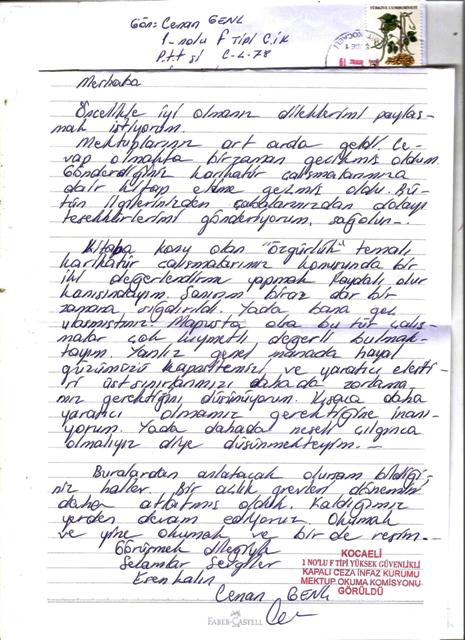 Gön: Cenan GENÇ
1-nolu F Tipi C.İK
C-4-78
TÜRKİYE CUMHURİYETİ
KOCAELİ
Merhaba
Öncelikle iyi olmanız dileklerimi paylaş-
mak istiyorum.
Mektuplarınız art arda geldi. Ce-
vap olmakta bir zaman gecikmiş oldum.
Gönderdiğiniz karikatür çalışmalarımıza
dair kitap elime geçmiş oldu. Bü-
tün ilgilerinizden çabalarınızdan dolayı
teşekkürlerimi gönderiyorum, sağolun-.
Kitaba konu olan "özgürlük" temalı
karikatür çalışmalarımız konusunda bir
iki değerlendirme yapmak faydalı olur
kanısındayım. Sanırım biraz dar bir
zamana sığdırıldı. Yada bana geç
ulaşmıştınız. Mapusta olup bu tür çalış-
malar çok kıymetli değerli bulmak-
tayım. Yanlız genel manada hayal
gücümüzü kapasitemizi ve yaratıcı
üst sınırlarımızı daha da zorlama
mız gerektiğini düşünüyorum. Kısaca daha
yaratıcı olmamız gerektiğine inanı-
yorum. Yada dahada neşeli çılgınca
olmalıyız diye düşünmekteyim.-.
Buralardan anlatacak olursam bildiği-
niz haller. Bir açlık grevleri dönemini
daha atlatmış olduk. Kaldığımız
yerden devam ediyoruz. Okumak
ve yine okumak ve bir de resim.-
Görüşmek dileğiyle
Selamlar Sevgiler
Esen kalın
Cenan GENÇ
KOCAELİ
1 NO'LU F TİPİ YÜKSEK GÜVENLİKLİ
KAPALI CEZA İNFAZ KURUMU
MEKTUP OKUMA KOMİSYONU
GÖRÜLDÜ
FABER-CASTELL